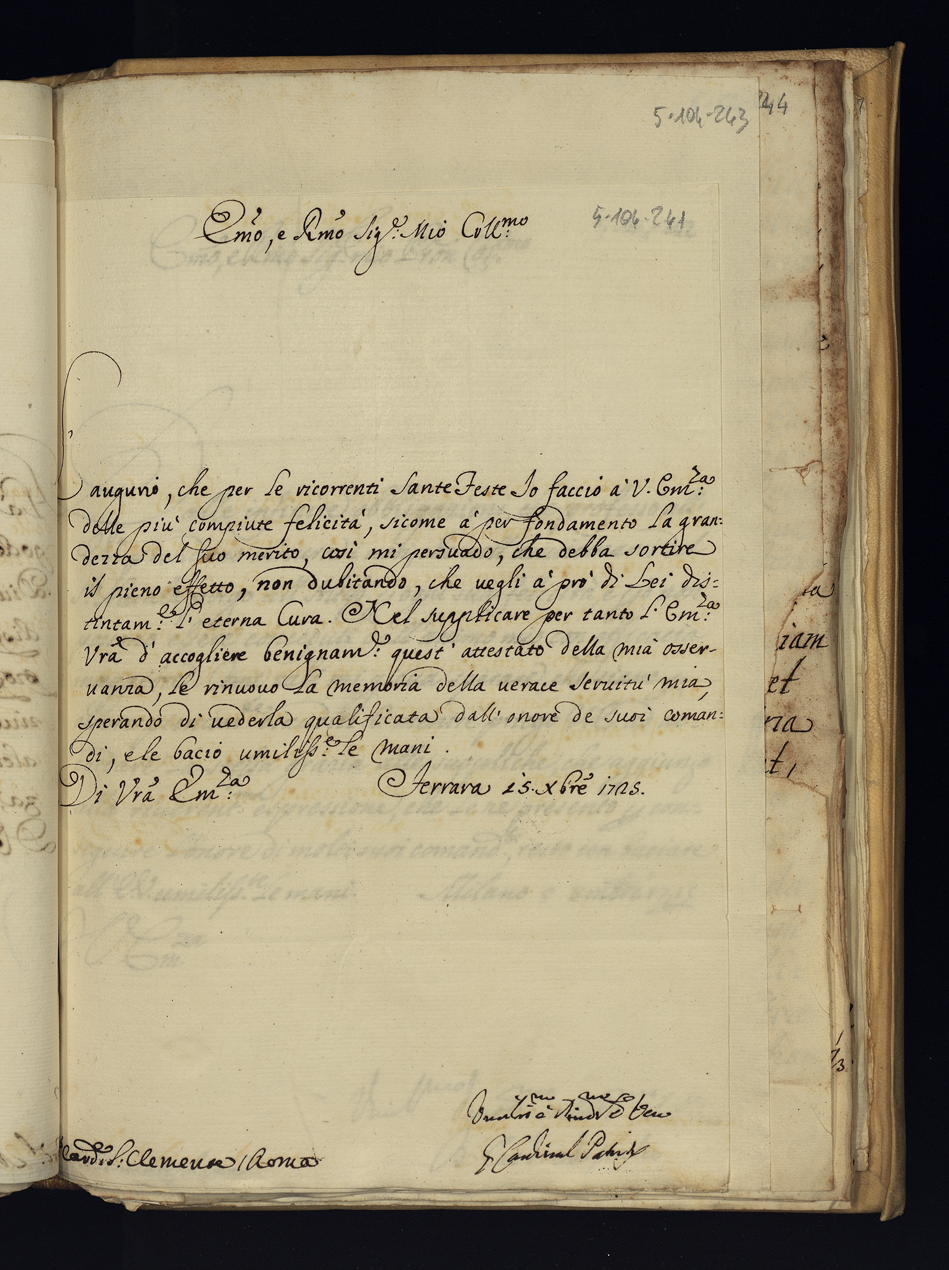 244
5·104·243
5·104·241
Em̃o, e Rm̃o Sig.re Mio Coll.mo
L'augurio, che per le ricorrenti Sante Feste Io faccio à V. Em.za
delle più compiute felicità, sicome à per fondamento la gran:
dezza del suo merito, così mi persuado, che debba sortire
il pieno effetto, non dubitando, che vegli à prò di Lei dis:
tintam.e l'eterna Cura. Nel supplicare per tanto l'Em.za
Vrã d'accogliere benignam.e quest'attestato della mia osser-
vanza, le rinuovo la memoria della verace servitù mia,
sperando di vederla qualificata dall'onore de suoi coman:
di, e le bacio umiliss.e le mani.
Di Vrã Em.za Ferrara 15. Xbrẽ 1725.
iam
et
Cardinal
S: Clemente / Roma